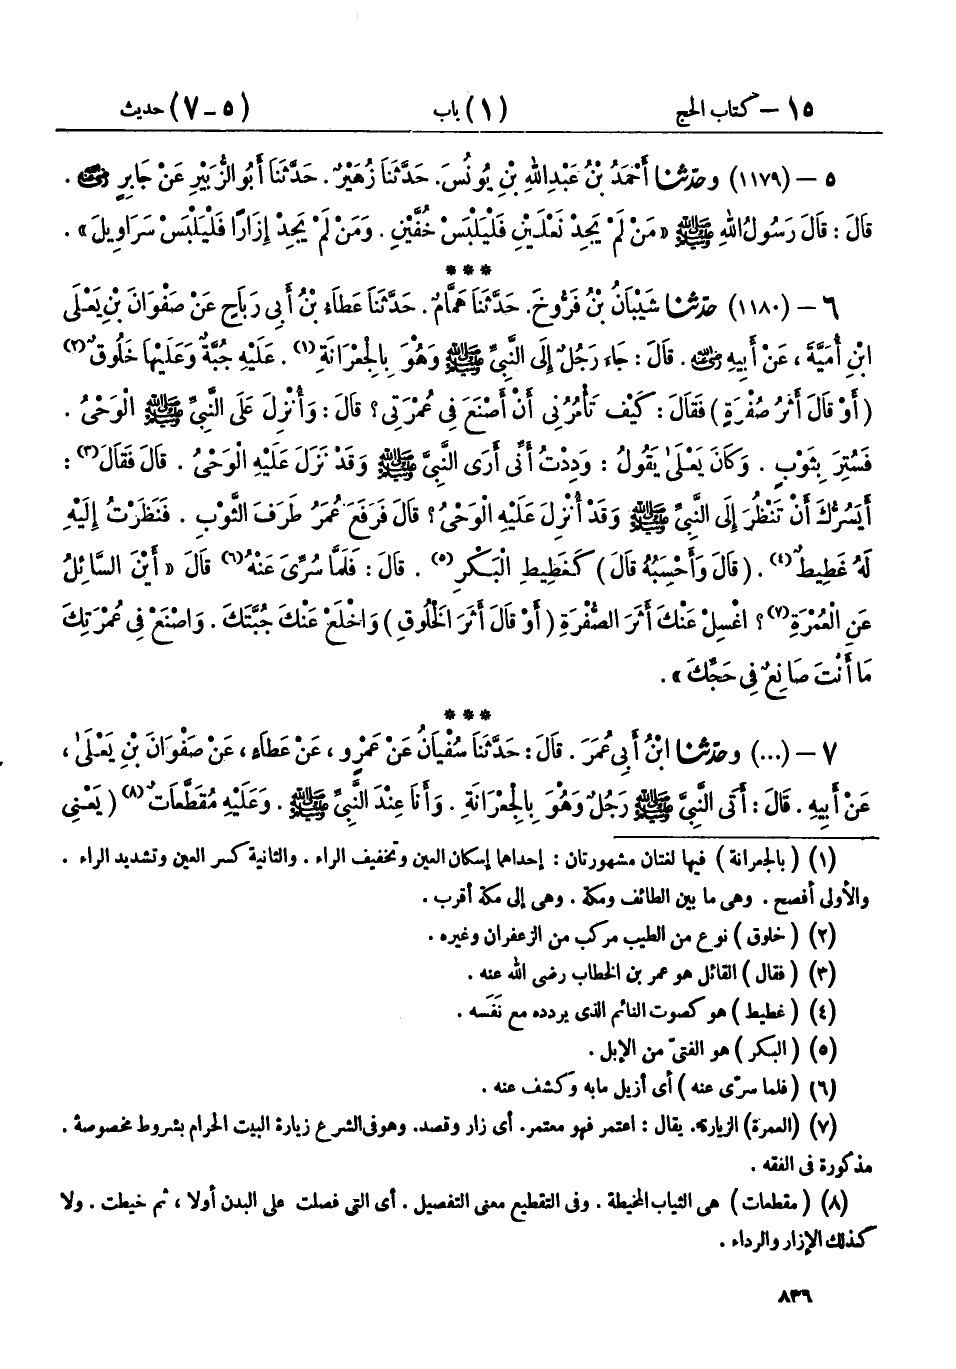 ١٥ – كتاب الحج (١) باب (٥ – ٧) حديث
٥ – (١١٧٩) وحَدَّثَنَا أَحْمَدُ بْنُ عَبْدِ اللهِ بْنِ يُونُسَ. حَدَّثَنَا زُهَيْرٌ. حَدَّثَنَا أَبُو الزُّبَيْرِ عَنْ جَابِرٍ رضي الله عنه .
قَالَ : قَالَ رَسُولُ اللهِ ﷺ « مَنْ لَمْ يَجِدْ نَعْلَيْنِ فَلْيَلْبَسْ خُفَّيْنِ . وَمَنْ لَمْ يَجِدْ إِزَارًا فَلْيَلْبَسْ سَرَاوِيلَ » .
***
٦ – (١١٨٠) حَدَّثَنَا شَيْبَانُ بْنُ فَرُّوخَ. حَدَّثَنَا هَمَّامٌ. حَدَّثَنَا عَطَاءُ بْنُ أَبِي رَبَاحٍ عَنْ صَفْوَانَ بْنِ يَعْلَى
ابْنِ أُمَيَّةَ ، عَنْ أَبِيهِ رضي الله عنه . قَالَ : جَاءَ رَجُلٌ إِلَى النَّبِيِّ ﷺ وَهُوَ بِالْجِعْرَانَةِ(١) . عَلَيْهِ جُبَّةٌ وَعَلَيْهَا خَلُوقٌ(٢)
( أَوْ قَالَ أَثَرُ صُفْرَةٍ ) فَقَالَ : كَيْفَ تَأْمُرُنِي أَنْ أَصْنَعَ فِي عُمْرَتِي ؟ قَالَ : وَأُنْزِلَ عَلَى النَّبِيِّ ﷺ الْوَحْيُ .
فَسُتِرَ بِثَوْبٍ . وَكَانَ يَعْلَىٰ يَقُولُ : وَدِدْتُ أَنِّي أَرَى النَّبِيَّ ﷺ وَقَدْ نَزَلَ عَلَيْهِ الْوَحْيُ . قَالَ فَقَالَ(٣) :
أَيَسُرُّكَ أَنْ تَنْظُرَ إِلَى النَّبِيِّ ﷺ وَقَدْ أُنْزِلَ عَلَيْهِ الْوَحْيُ ؟ قَالَ فَرَفَعَ عُمَرُ طَرَفَ الثَّوْبِ . فَنَظَرْتُ إِلَيْهِ
لَهُ غَطِيطٌ(٤) . ( قَالَ وَأَحْسِبُهُ قَالَ ) كَغَطِيطِ الْبَكْرِ(٥) . قَالَ : فَلَمَّا سُرِّيَ عَنْهُ(٦) قَالَ « أَيْنَ السَّائِلُ
عَنِ الْعُمْرَةِ(٧) ؟ اغْسِلْ عَنْكَ أَثَرَ الصُّفْرَةِ ( أَوْ قَالَ أَثَرَ الْخَلُوقِ ) وَاخْلَعْ عَنْكَ جُبَّتَكَ . وَاصْنَعْ فِي عُمْرَتِكَ
مَا أَنْتَ صَانِعٌ فِي حَجِّكَ » .
***
٧ – (...) وحَدَّثَنَا ابْنُ أَبِي عُمَرَ . قَالَ : حَدَّثَنَا سُفْيَانُ عَنْ عَمْرٍو ، عَنْ عَطَاءٍ ، عَنْ صَفْوَانَ بْنِ يَعْلَىٰ ،
عَنْ أَبِيهِ . قَالَ : أَتَى النَّبِيَّ ﷺ رَجُلٌ وَهُوَ بِالْجِعْرَانَةِ . وَأَنَا عِنْدَ النَّبِيِّ ﷺ . وَعَلَيْهِ مُقَطَّعَاتٌ(٨) ( يَعْنِي
(١) ( بالجعرانة ) فيها لغتان مشهورتان : إحداها إسكان العين وتخفيف الراء . والثانية كسر العين وتشديد الراء .
والأولى أفصح . وهى ما بين الطائف ومكة . وهى إلى مكة أقرب .
(٢) ( خلوق ) نوع من الطيب مركب من الزعفران وغيره .
(٣) ( فقال ) القائل هو عمر بن الخطاب رضى الله عنه .
(٤) ( غطيط ) هو كصوت النائم الذى يردده مع نَفَسه .
(٥) ( البكر ) هو الفتىّ من الإبل .
(٦) ( فلما سرّى عنه ) أى أزيل مابه وكشف عنه .
(٧) (العمرة) الزيارة. يقال : اعتمر فهو معتمر. أى زار وقصد. وهو فى الشرع زيارة البيت الحرام بشروط مخصوصة .
مذكورة فى الفقه .
(٨) ( مقطعات ) هى الثياب المخيطة . وفى التقطيع معنى التفصيل . أى التى فصلت على البدن أولا ، ثم خيطت . ولا
كذلك الإزار والرداء .
٨٣٦